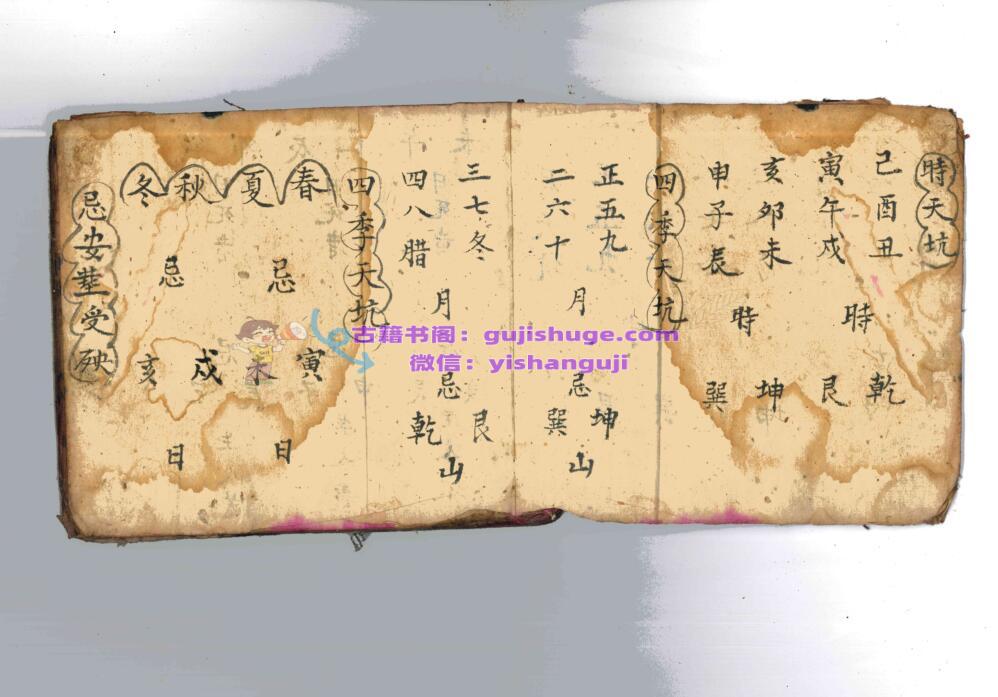 時天坑
己酉丑 乾
寅午戌 艮
時
亥卯未 坤
申子辰 巽
時
四季天坑
正五九 坤
月忌山
二六十 巽
三七冬 艮
月忌山
四八腊 乾
四季天坑
春 寅
夏
忌日
秋 戍
冬 亥
忌日
忌安塟受殃
古籍书阁：gujishuge.com
微信：yishanguji